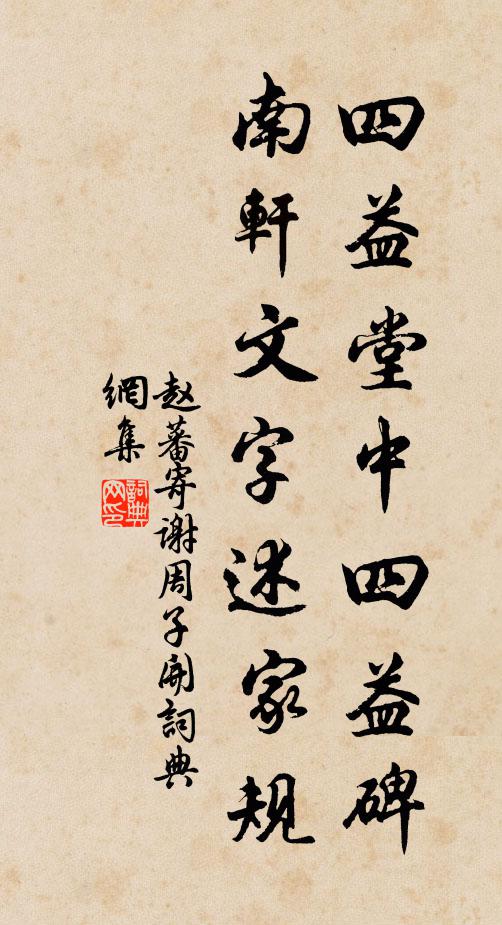 四益堂中四益碑
南軒文字述家規
赵蕃寄谢周子開詞典
網集
詞典
网印